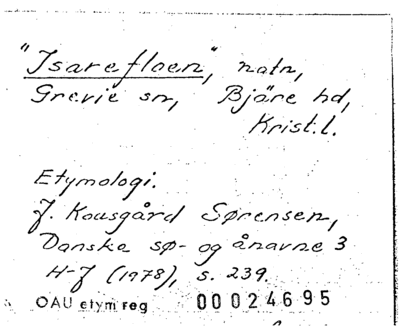 "Isarefloen", natn,
Grevie sn, Bjäre hd,
Krist.l.
Etymologi.
J. Kousgård Sørensen,
Danske sø- og ånavne 3
H-J (1978), s. 239.
OAU etym reg 00024695